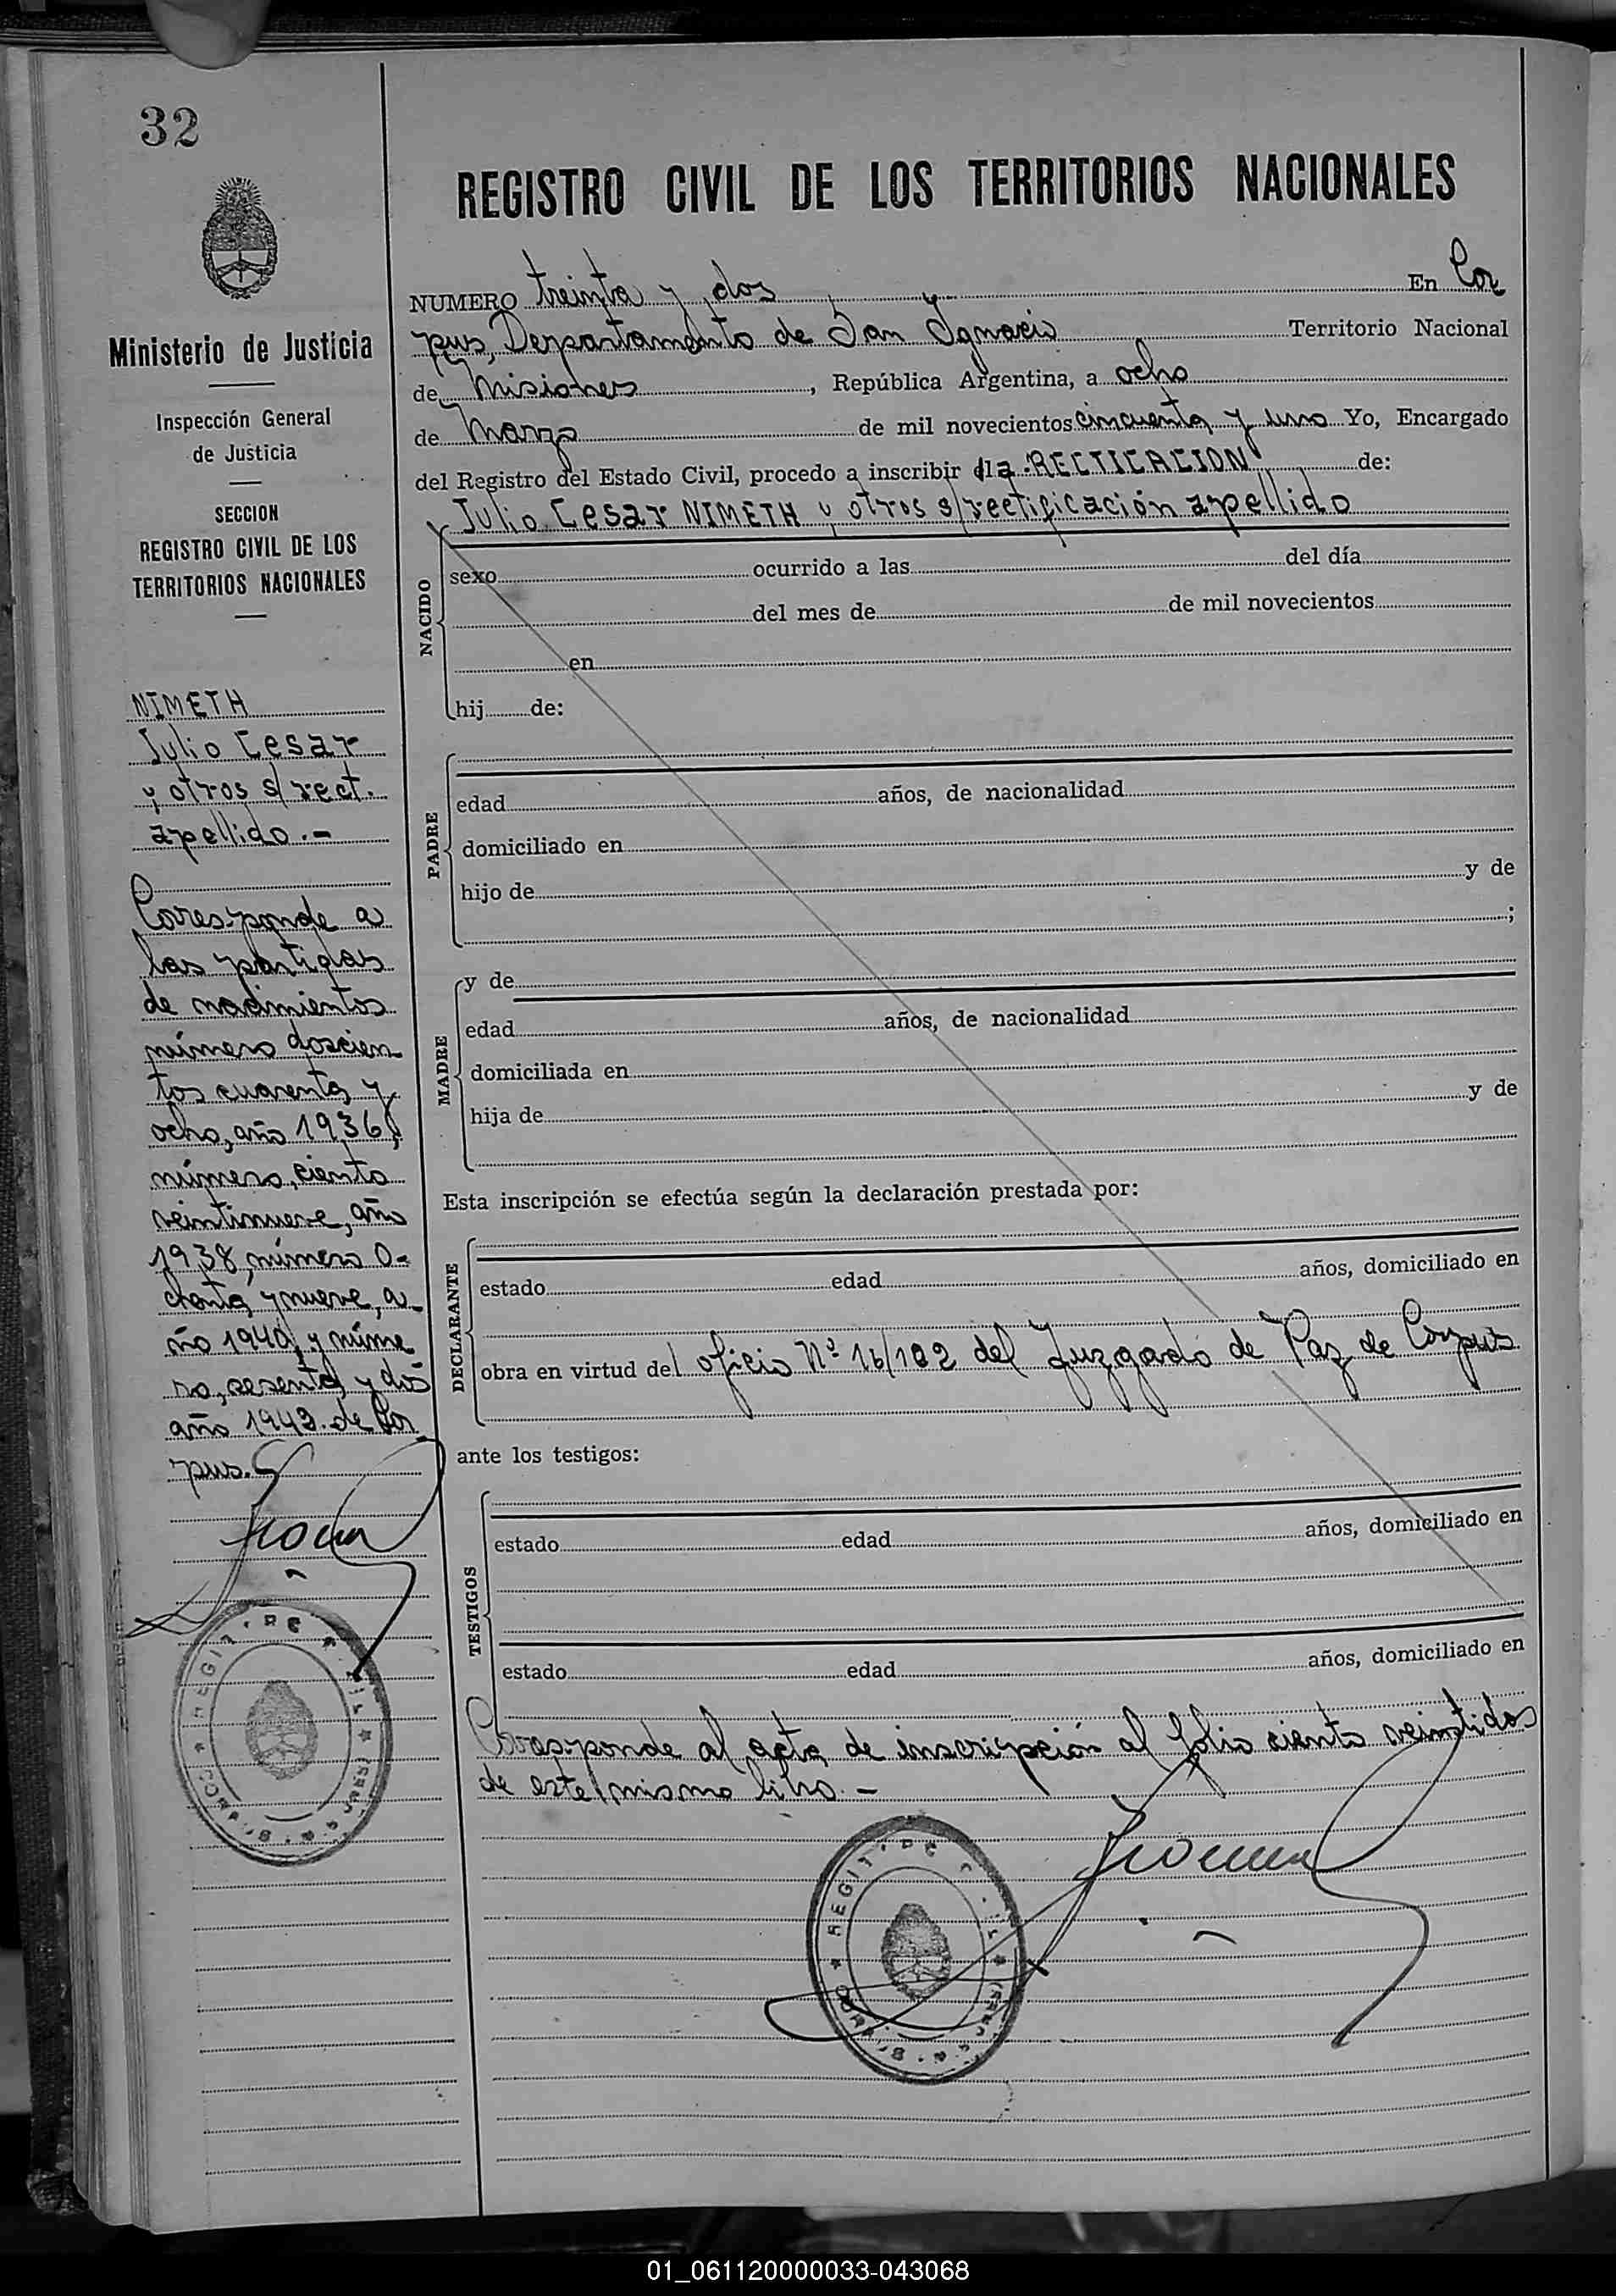 32
REGISTRO CIVIL DE LOS TERRITORIOS NACIONALES
NUMERO treinta y dos En Cor
pus, Departamento de San Ignacio Territorio Nacional
de Misiones, República Argentina, a ocho
de Marzo de mil novecientos cincuenta y uno Yo, Encargado
del Registro del Estado Civil, procedo a inscribir la RECTICACION de:
Julio Cesar NIMETH y otros s/rectificación apellido
NACIDO
sexo ocurrido a las del día
del mes de de mil novecientos
en
hij de:
PADRE
edad años, de nacionalidad
domiciliado en
hijo de y de
;
MADRE
y de
edad años, de nacionalidad
domiciliada en
hija de y de
Esta inscripción se efectúa según la declaración prestada por:
DECLARANTE
estado edad años, domiciliado en
obra en virtud del oficio Nº 16/102 del Juzgado de Paz de Corpus
ante los testigos:
TESTIGOS
estado edad años, domiciliado en
estado edad años, domiciliado en
Corresponde al acta de inscripción al folio ciento veintidos
de este mismo libro.-
Ministerio de Justicia
Inspección General
de Justicia
SECCION
REGISTRO CIVIL DE LOS
TERRITORIOS NACIONALES
NIMETH
Julio Cesar
y otros s/rect.
apellido.-
Coresponde a
las partidas
de nacimientos
número doscien
tos cuarenta y
ocho, año 1936,
número, ciento
veintinueve, año
1938, número o-
chenta y nueve, a-
ño 1940, y núme
ro, sesenta y dos
año 1943. de Cor
pus.
01_061120000033-043068